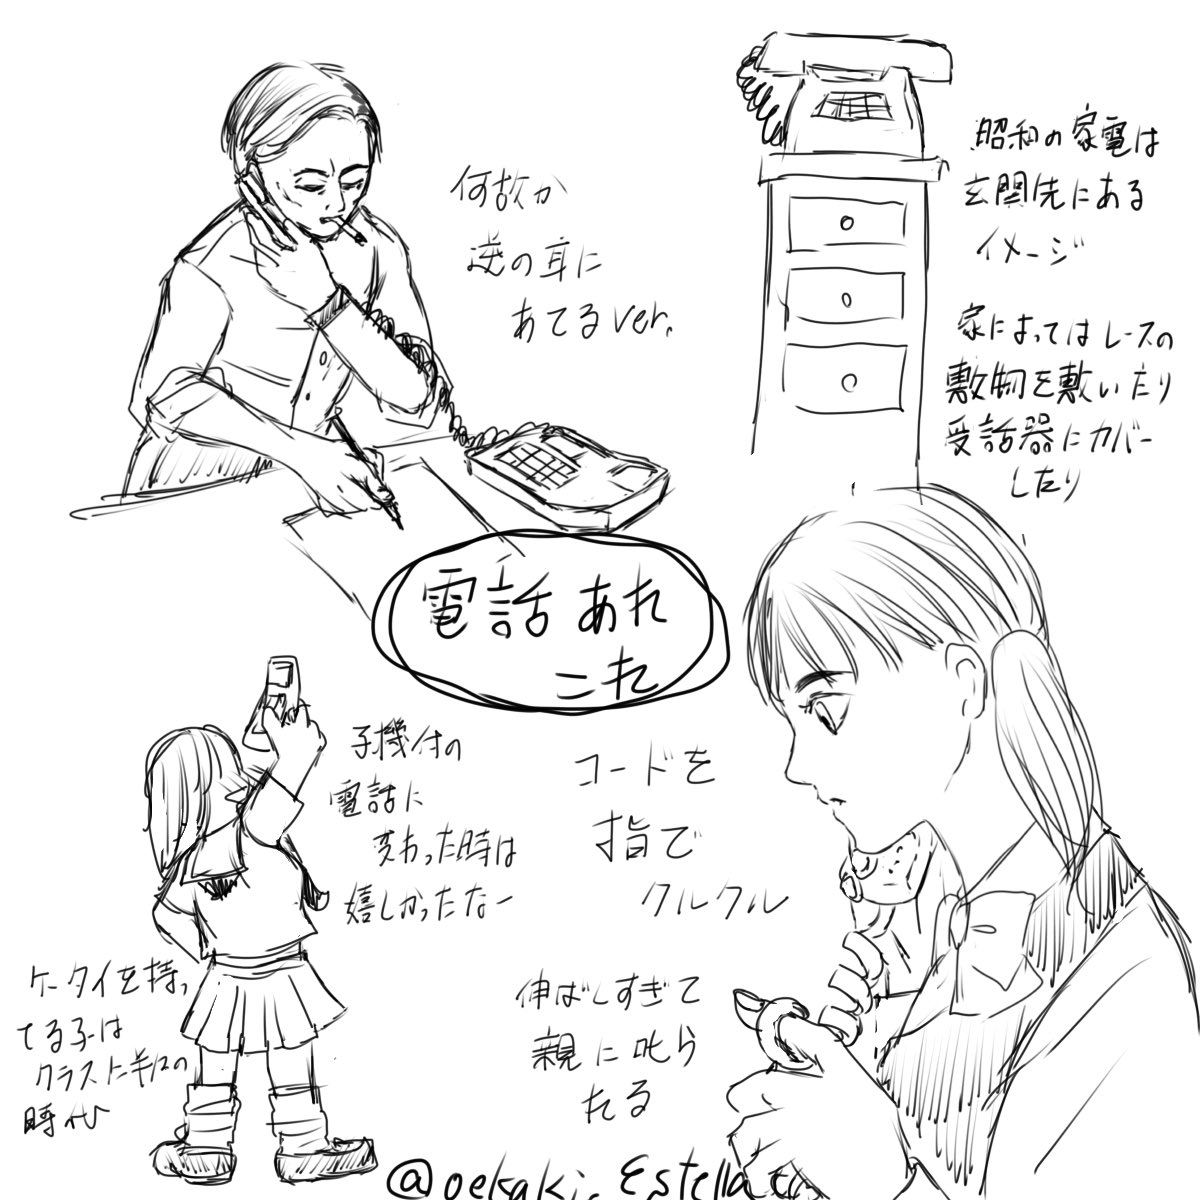 何故か
逆の耳に
あてるver.
昭和の家電は
玄関先にある
イメージ
家によってはレースの
敷物を敷いたり
受話器にカバー
したり
電話あれ
これ
子機付の
電話に
変わった時は
嬉しかったなー
コードを
指で
クルクル
伸ばしすぎて
親に叱ら
れる
ケータイを持っ
てる子は
クラスに半分の
時代
@oekaki_Estella